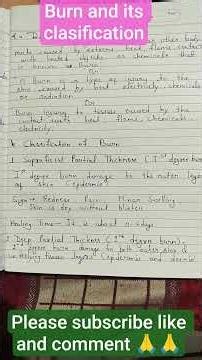 Burn and its
clasification
other body
parts caused by extreme heat, flame, contact
with heated objects or chemicals that
is known as Burn
Or
A Burn is a type of injury to the
skin caused by heat electricity chemicals
or radiation.
Or
Burn injury to tissues caused by the
contact heat flame chemicals
electricity.
Classification of Burn
1 Superficial Partial Thickness (Iˢᵗ degree burn)
Iˢᵗ degree burn damage to the outer layer
of skin (epidermis)
Sign → Redness Pain Minor Swelling
Skin is dry without blister
Healing time → It is about
Deep Partial Thickness (IIⁿᵈ degree burn)
degree burn damage to both outer skin &
layer (epidermis and dermis)
Please subscribe like
and comment 🙏🙏